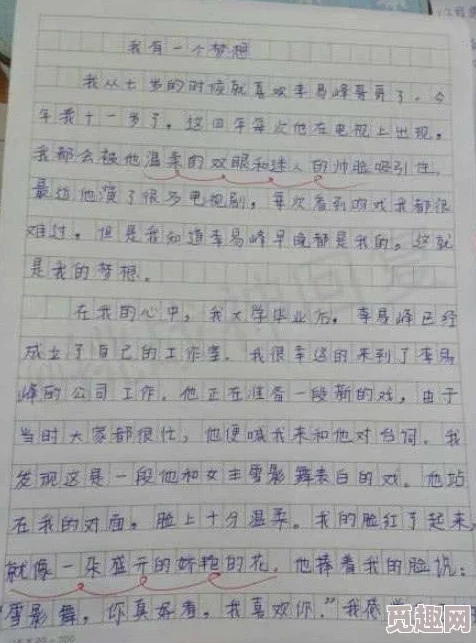 我有一个梦想
我从七岁的时候就喜欢李易峰哥哥了，今
年我十一岁了，这四年每次他在电视上出现，
我都会被他温柔的双眼和迷人的帅脸吸引住，
最近他演了很多电视剧，每次看到吻戏我都很
难过，但是我知道李易峰早晚都是我的，这就
是我的梦想。
在我的心中，我大学毕业后，李易峰已经
成立了自己的工作室。我很幸运的来到了李易
峰的公司工作，他正在准备一段新的戏，由于
当时大家都很忙，他便喊我来和他对台词。我
发现这是一段他和女主雪影舞表白的戏。他站
在我的对面，脸上十分温柔。我的脸红了起来，
就像一朵盛开的娇艳的花，他捧着我的脸说：
“雪影舞，你真好看，我喜欢你。”我
觅趣网